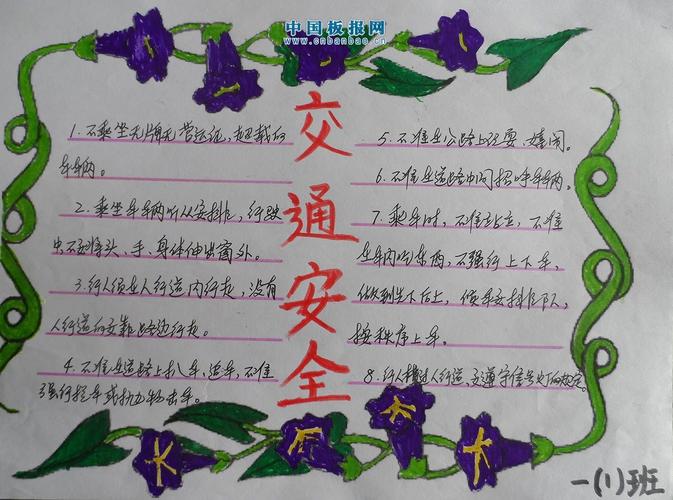 中国板报网
www.cnbanbao.cn
交通安全
1. 不乘坐无牌无营运证,超载的
车辆。
2. 乘坐车车辆听从安排,行驶
中不到将头、手、身体伸出窗外。
3. 行人须在人行道内行走,没有
人行道的交靠路边行走。
4. 不准在道路上扒车、追车、不准
强行拦车或抛物击车。
5. 不准在公路上玩耍、嬉闹。
6. 不准在道路中间招呼车辆。
7. 乘车时,不准站立,不准
在车内吃东西,不强行上下车,
做到先下后上,候车要排队,
按秩序上车。
8. 行人横过人行道,交遵守信号灯的规定。
一(1)班